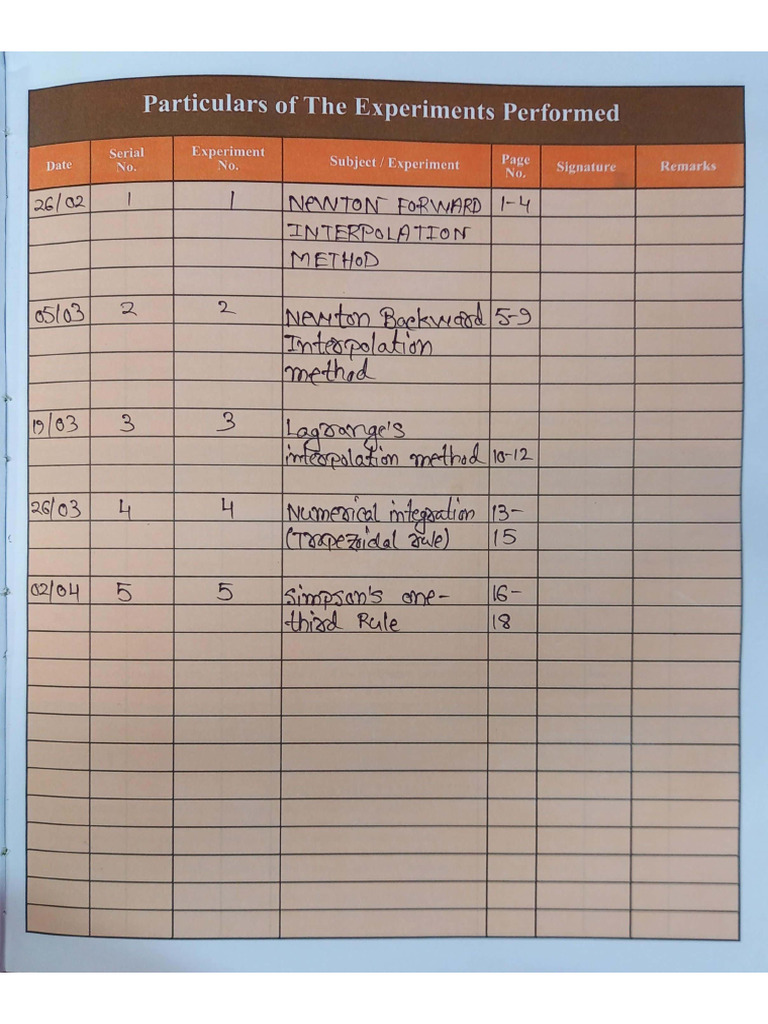 Particulars of The Experiments Performed
Date Serial No. Experiment No. Subject / Experiment Page No. Signature Remarks
26/02 1 1 NEWTON FORWARD 1-4
INTERPOLATION
METHOD
05/03 2 2 Newton Backward 5-9
Interpolation
method
19/03 3 3 Lagrange's
interpolation method 10-12
26/03 4 4 Numerical integration 13-
(Trapezoidal rule) 15
02/04 5 5 Simpson's one- 16-
third Rule 18